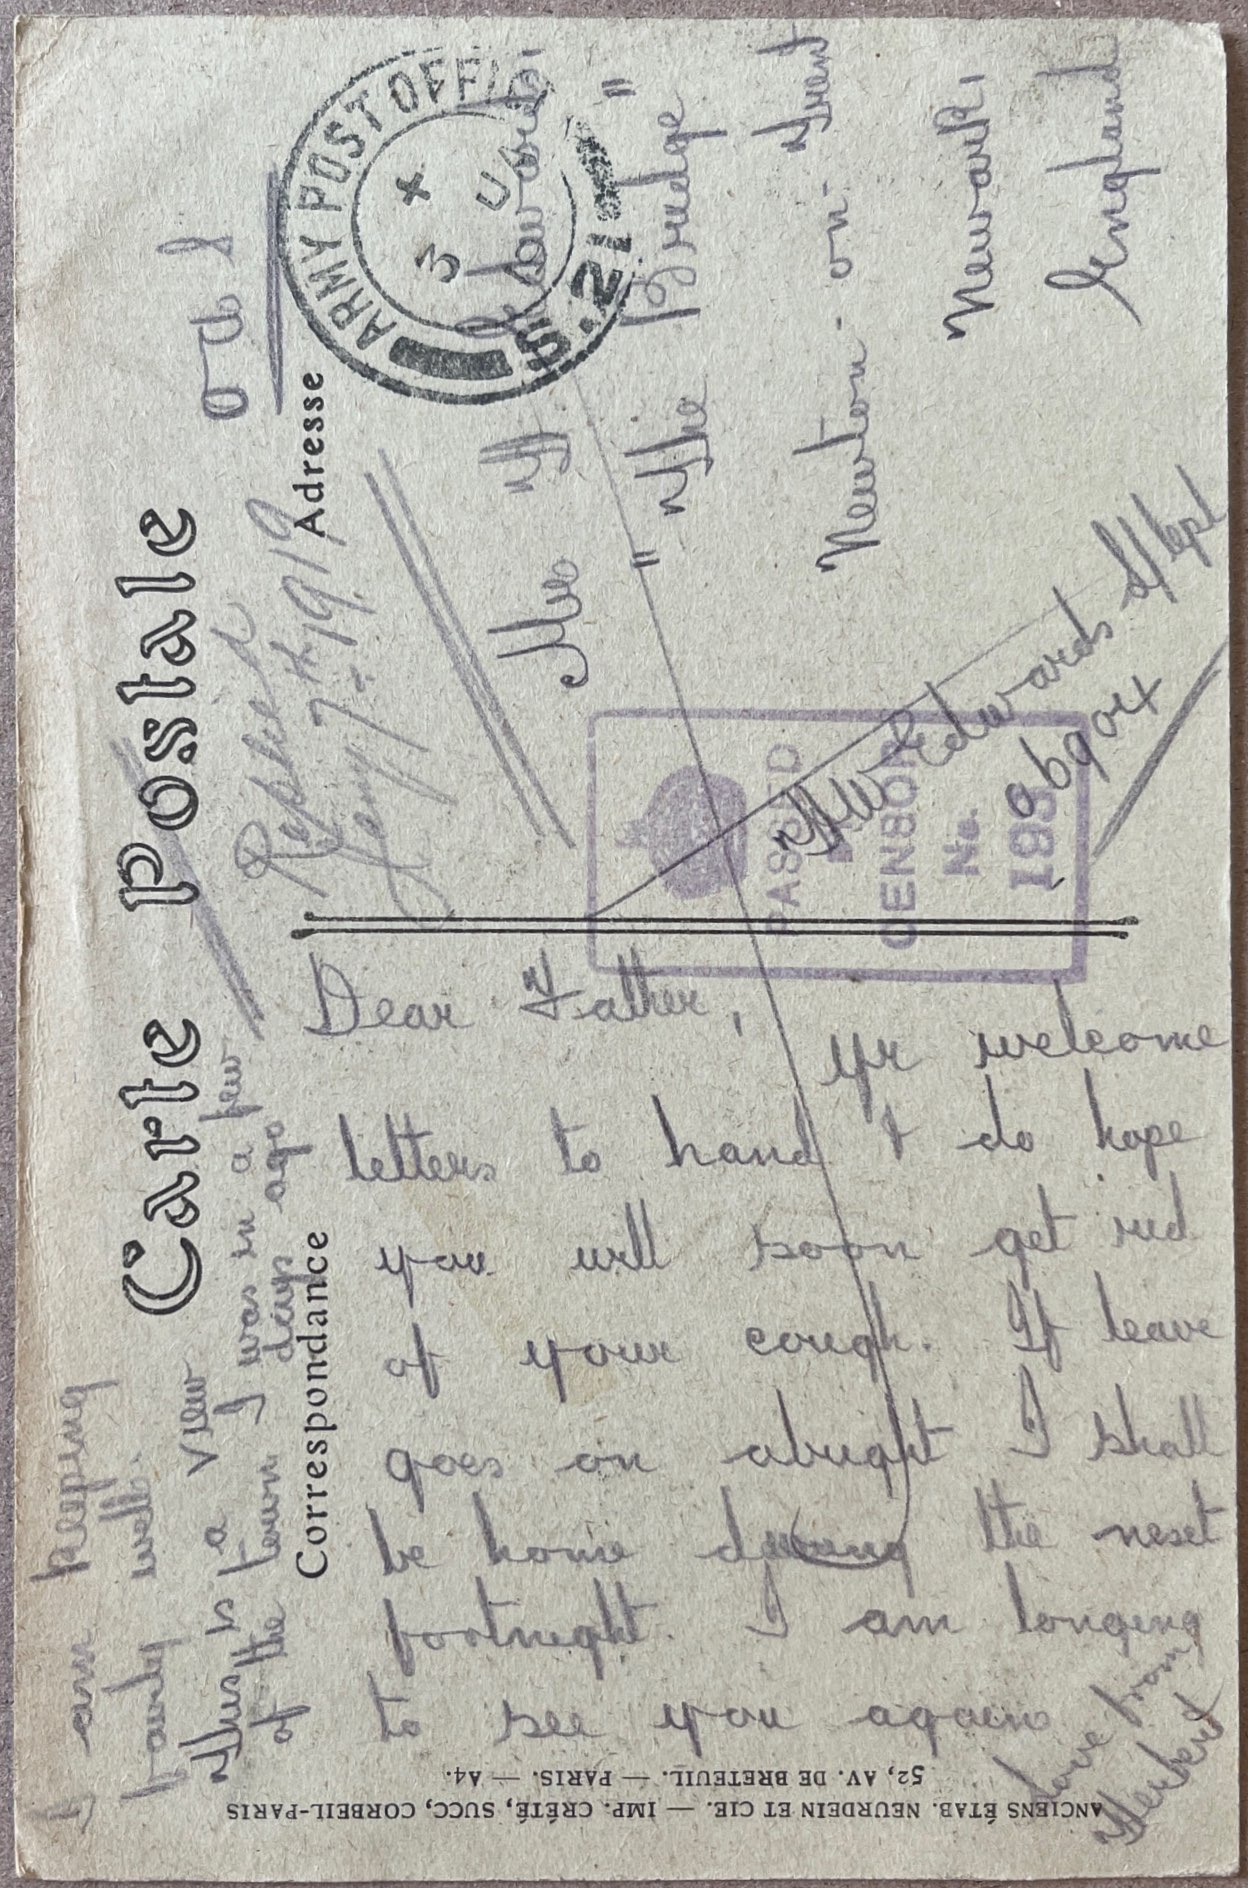 I am keeping
fairly well.
Carte Postale
This is a view
of the town I was in a few
days ago
Correspondance
Adresse
Replied
Jany 7th 1919
ARMY POST OFFICE
X
3
S.21
Dear Father,
Yr welcome
letters to hand & do hope
you will soon get rid
of your cough. If leave
goes on alright I shall
be home during the next
fortnight. I am longing
to see you again
Love from
Herbert
Mr T. Edwards,
" The Bridge "
Newton-on-Trent
Newark,
England
PASSED
CENSOR
No.
HW Edwards
ANCIENS ÉTAB. NEURDEIN ET CIE. — IMP. CRÉTÉ, SUCC, CORBEIL-PARIS
52, AV. DE BRETEUIL. — PARIS. — A4.